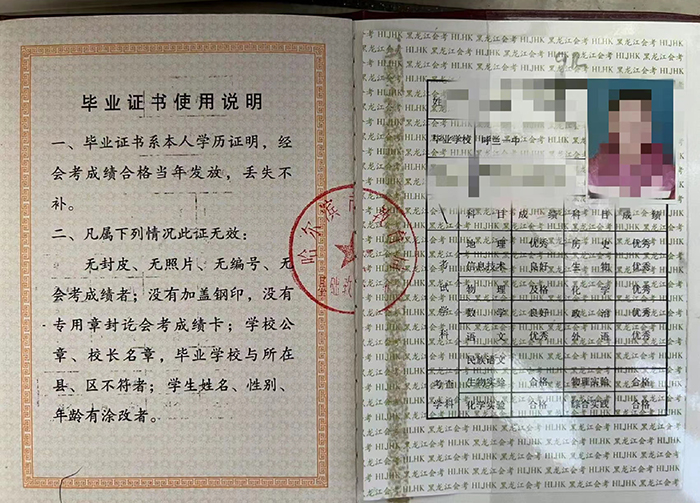 毕业证书使用说明
一、毕业证书系本人学历证明，经
会考成绩合格当年发放，丢失不
补。
二、凡属下列情况此证无效：
无封皮、无照片、无编号、无
会考成绩者；没有加盖钢印，没有
专用章封讫会考成绩卡；学校公
章、校长名章，毕业学校与所在
县、区不符者；学生姓名、性别、
年龄有涂改者。
哈尔滨市
基础教
黑龙江会考 HLJHK 黑龙江会考 HLJHK
姓
毕业学校 呼兰一中
科目 成绩 科目 成绩
考试学科
地理 优秀 历史 优秀
信息技术 良好 生物 优秀
物理 及格 化学 优秀
数学 良好 政治 优秀
语文 优秀 外语 优秀
民族语文
考查学科
生物实验 合格 物理实验 合格
化学实验 合格 综合实践 合格